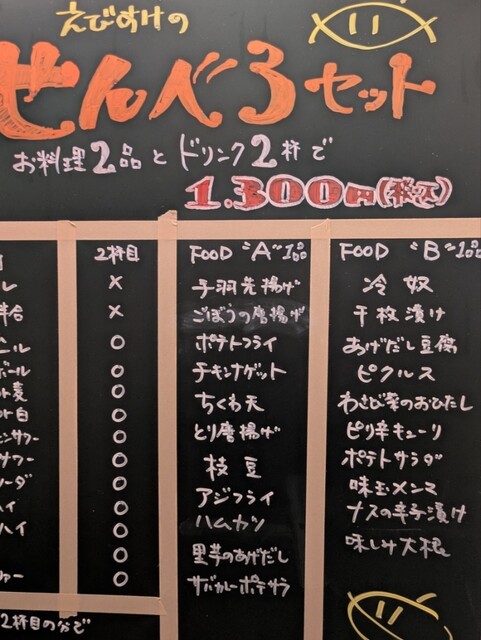 えびすけの
せんべろセット
お料理2品とドリンク2杯で
1.300円(税込)
2杯目
×
×
○
○
○
○
○
○
○
○
○
○
FOOD "A" 1品
手羽先揚げ
ごぼうの唐揚げ
ポテトフライ
チキンナゲット
ちくわ天
とり唐揚げ
枝豆
アジフライ
ハムカツ
里芋のあげだし
サバカレーポテサラ
FOOD "B" 1品
冷奴
千枚漬け
あげだし豆腐
ピクルス
わさび菜のおひたし
ピリ辛キューリ
ポテトサラダ
味玉メンマ
ナスの辛子漬け
味しみ大根
2杯目の分で